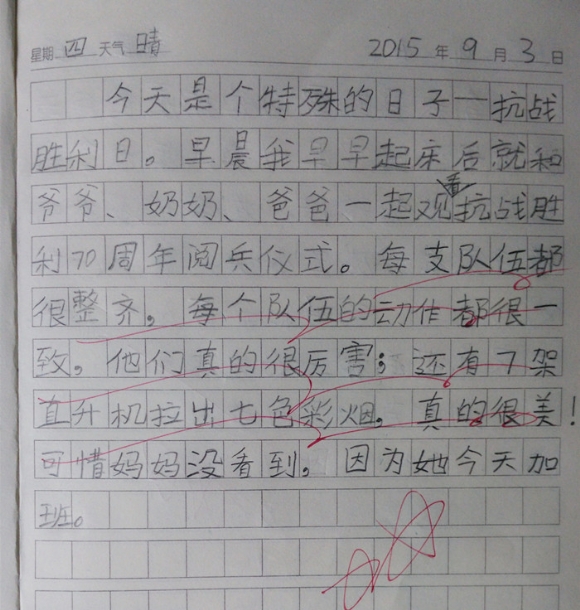 星期 四 天气 晴 2015 年 9 月 3 日
今天是个特殊的日子一抗战
胜利日。早晨我早早起床后就和
爷爷、奶奶、爸爸一起观看抗战胜
利70周年阅兵仪式。每支队伍都
很整齐。每个队伍的动作都很一
致。他们真的很厉害；还有7架
直升机拉出七色彩烟，真的很美！
可惜妈妈没看到，因为她今天加
班。